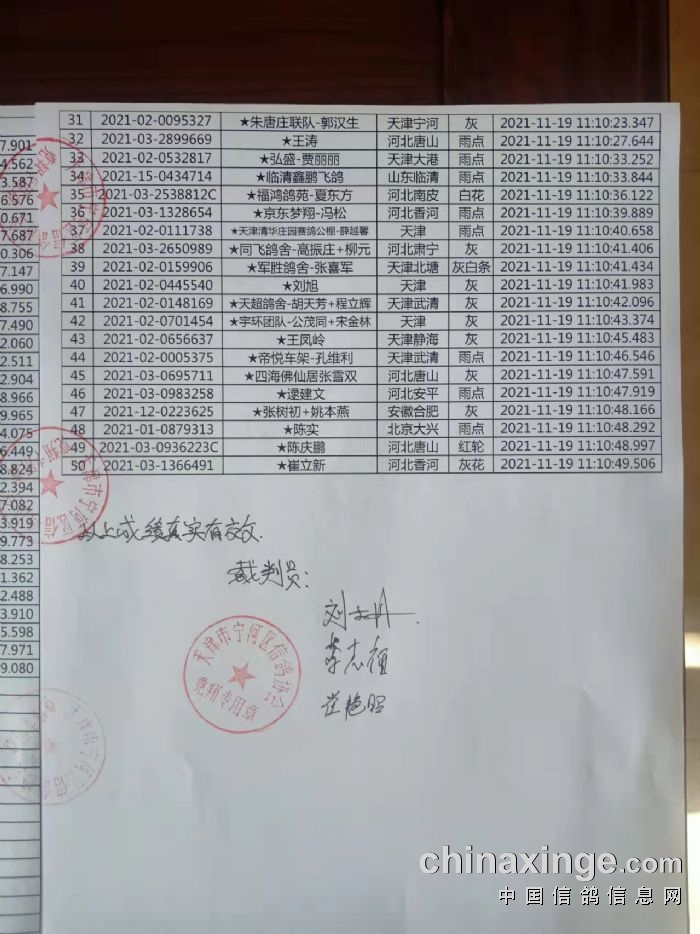 7.901
4.562
3.587
6.576
0.671
7.687
0.306
7.147
6.990
8.755
7.490
2.060
2.511
2.904
8.966
2.965
4.075
6.449
8.824
2.394
7.082
3.919
9.773
8.253
1.362
2.488
3.910
5.598
7.971
9.080
31 2021-02-0095327 ★朱唐庄联队-郭汉生 天津宁河 灰 2021-11-19 11:10:23.347
32 2021-03-2899669 ★王涛 河北唐山 雨点 2021-11-19 11:10:27.644
33 2021-02-0532817 ★弘盛-贾丽丽 天津大港 雨点 2021-11-19 11:10:33.252
34 2021-15-0434714 ★临清鑫鹏飞鸽 山东临清 雨点 2021-11-19 11:10:33.844
35 2021-03-2538812C ★福鸿鸽苑-夏东方 河北南皮 白花 2021-11-19 11:10:36.122
36 2021-03-1328654 ★京东梦翔-冯松 河北香河 雨点 2021-11-19 11:10:39.889
37 2021-02-0111738 ★天津清华庄园赛鸽公棚-薛越馨 天津 雨点 2021-11-19 11:10:40.658
38 2021-03-2650989 ★同飞鸽舍-高振庄+柳元 河北肃宁 灰 2021-11-19 11:10:41.406
39 2021-02-0159906 ★军胜鸽舍-张喜军 天津北塘 灰白条 2021-11-19 11:10:41.434
40 2021-02-0445540 ★刘旭 天津 灰 2021-11-19 11:10:41.983
41 2021-02-0148169 ★天超鸽舍-胡天芳+程立辉 天津武清 灰 2021-11-19 11:10:42.096
42 2021-02-0701454 ★宇环团队-公茂同+宋金林 天津 灰 2021-11-19 11:10:43.374
43 2021-02-0656637 ★王凤岭 天津静海 灰 2021-11-19 11:10:45.483
44 2021-02-0005375 ★帝悦车架-孔维利 天津武清 雨点 2021-11-19 11:10:46.546
45 2021-03-0695711 ★四海佛仙居张雪双 河北唐山 灰 2021-11-19 11:10:47.591
46 2021-03-0983258 ★逯建文 河北安平 雨点 2021-11-19 11:10:47.919
47 2021-12-0223625 ★张树初+姚本燕 安徽合肥 灰 2021-11-19 11:10:48.166
48 2021-01-0879313 ★陈实 北京大兴 雨点 2021-11-19 11:10:48.292
49 2021-03-0936223C ★陈庆鹏 河北唐山 红轮 2021-11-19 11:10:48.997
50 2021-03-1366491 ★崔立新 河北香河 灰花 2021-11-19 11:10:49.506
以上成绩真实有效.
裁判员:
天津市宁河区信鸽协会
竞翔专用章
chinaxinge.com
中国信鸽信息网